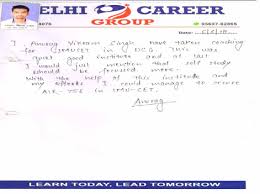 DELHI CAREER
GROUP
Date:
I Anurag Vikram Singh have taken coaching
for IMUCET in DCG. This was
quite good institute and at last
I would just mention that self study
should be focused more.
With the help of this institute and
my efforts I could manage to secure
AIR-756 in IMU-CET.
Anurag
LEARN TODAY, LEAD TOMORROW